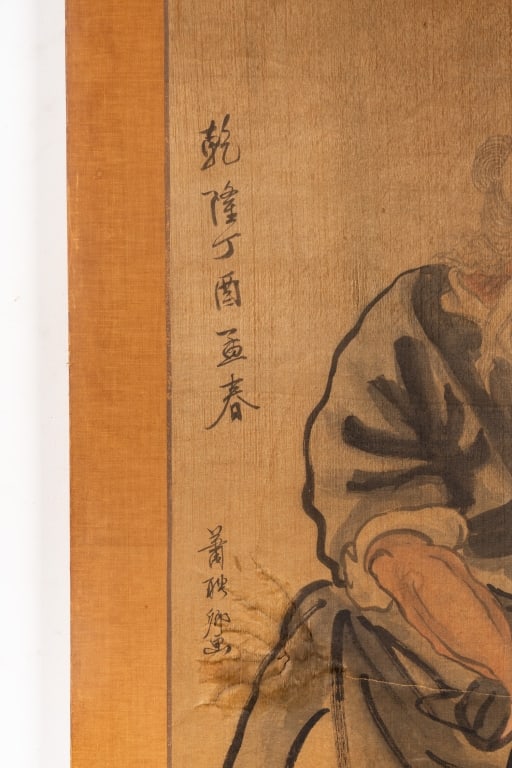 乾隆丁酉孟春
蕭聃卿画